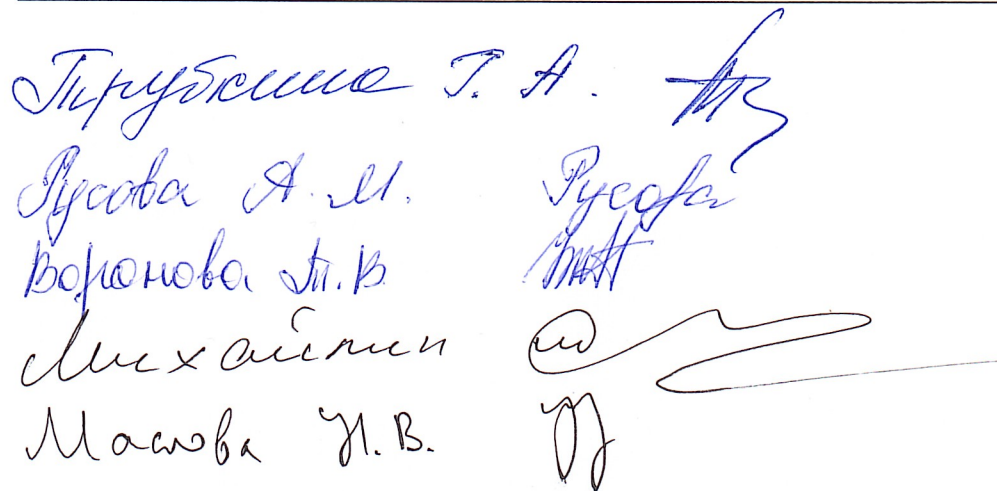 Трубкина Т. А.
Русова А. М. Русова
Воронова Т. В.
Михайлин
Маслова Н. В.